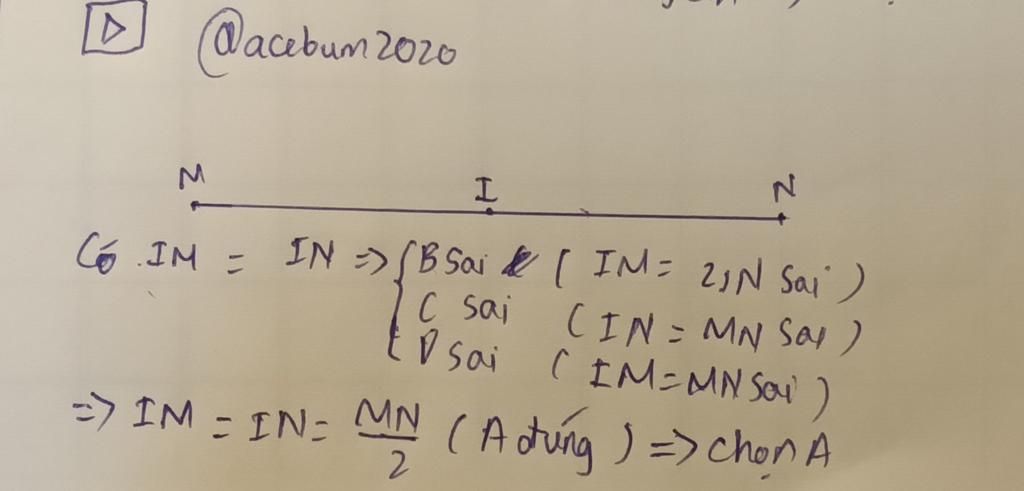 @acebum2020
M I N
Có IM = IN => { B sai ( IM = 2IN sai )
C sai ( IN = MN sai )
D sai ( IM = MN sai )
=> IM = IN = MN/2 ( A đúng ) => chọn A